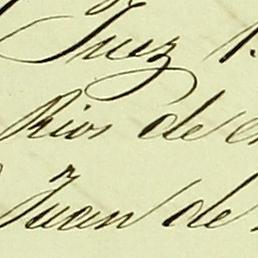 Juez 1
Rios de
Juan de